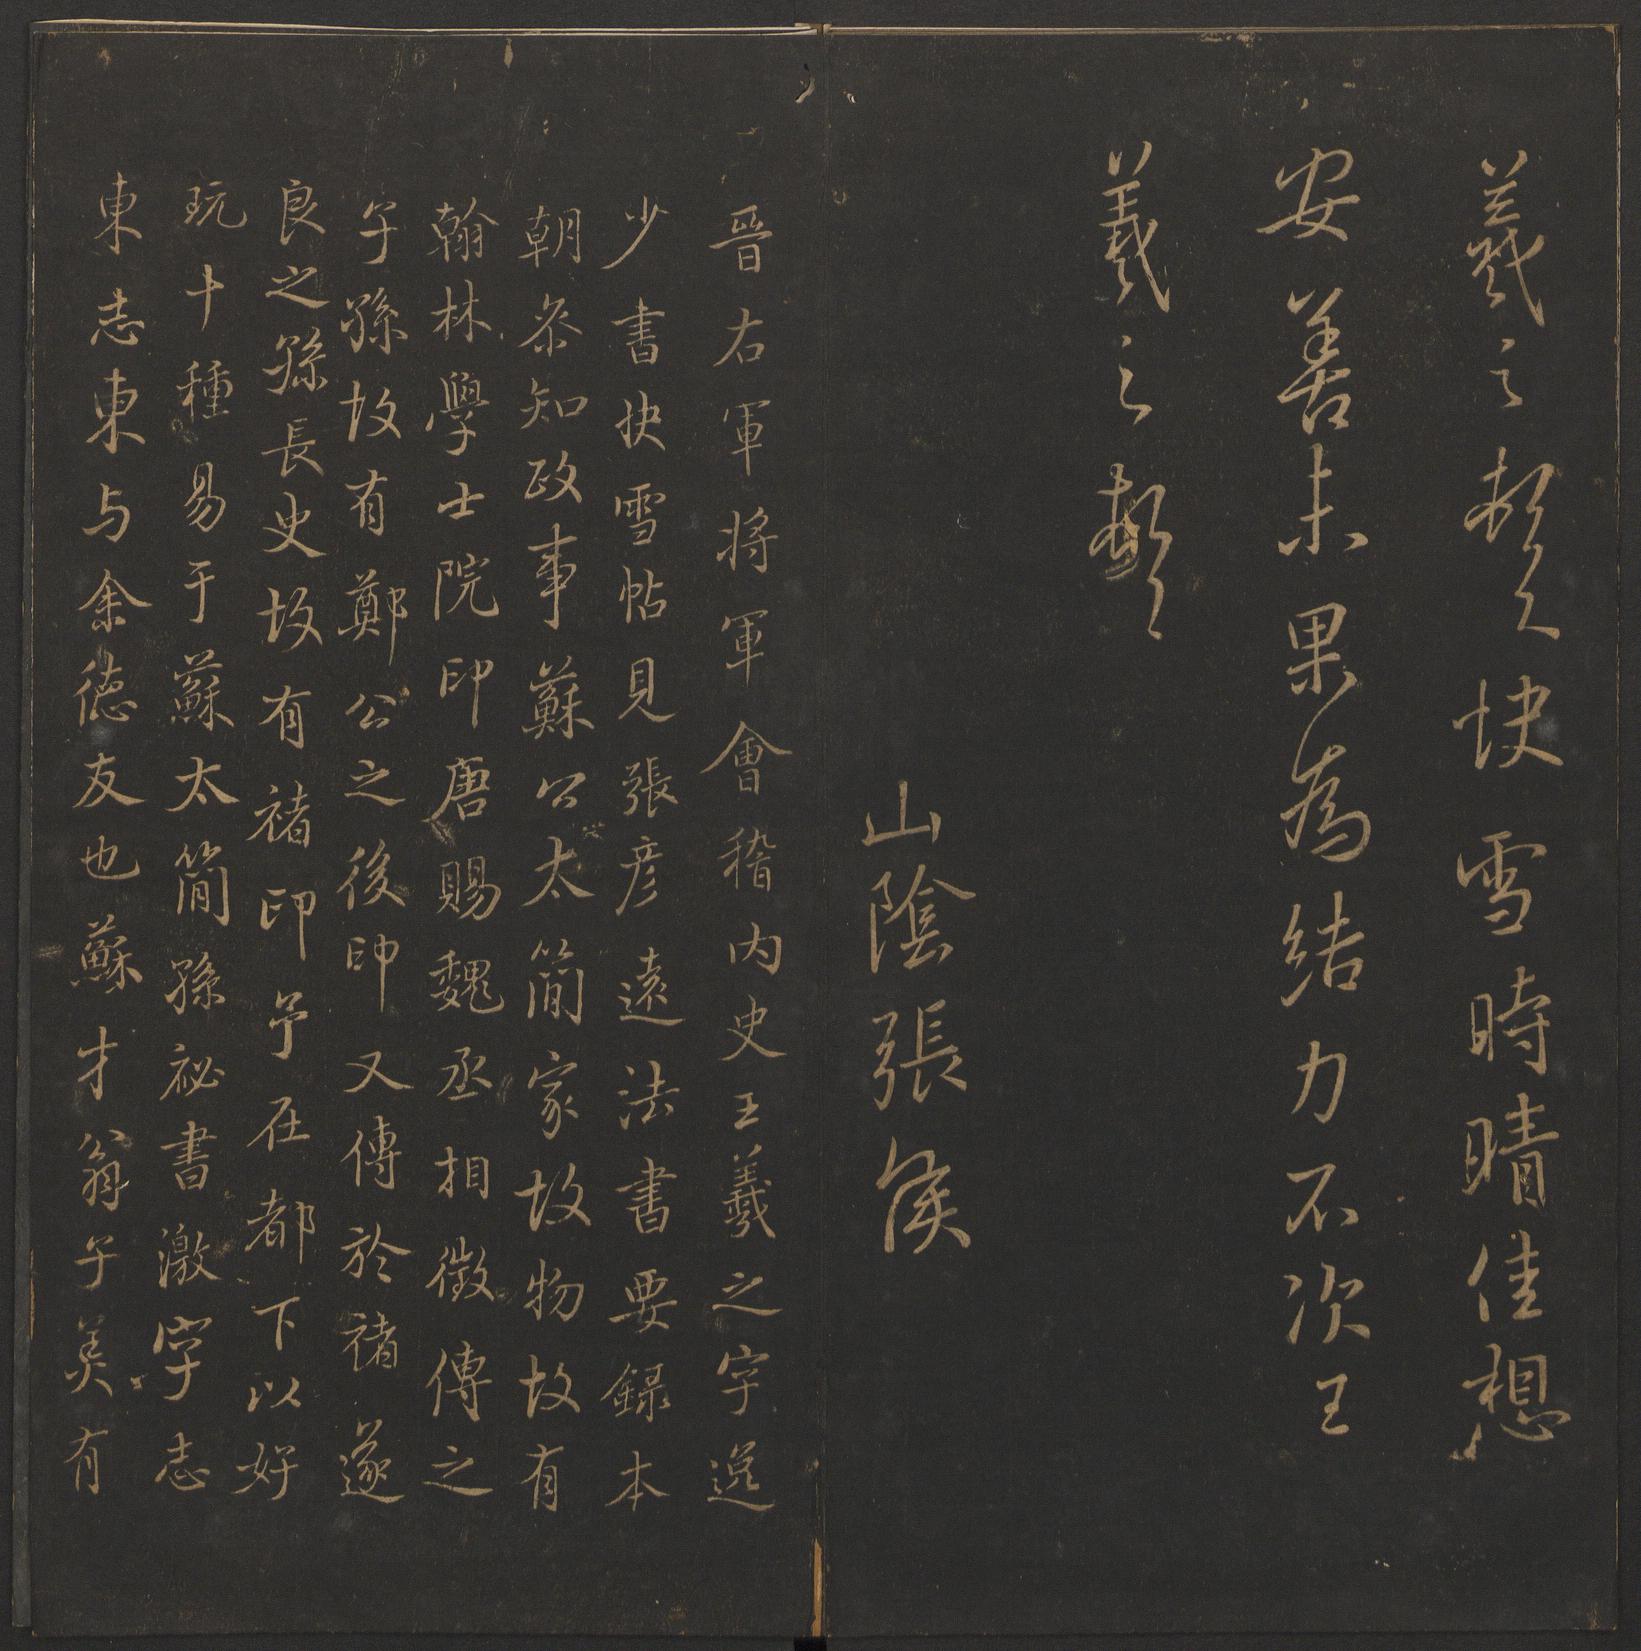 羲之頓首快雪時晴佳想
安善未果為結力不次王
羲之頓首
山陰張侯
晉右軍將軍會稽內史王羲之字逸
少書快雪帖見張彥遠法書要録本
朝叅知政事蘇公太簡家故物故有
翰林學士院印唐賜魏丞相徵傳之
子孫故有鄭公之後印又傳於褚遂
良之孫長史故有褚印予在都下以好
玩十種易于蘇太簡孫祕書激字志
東志東与余德友也蘇才翁子美有